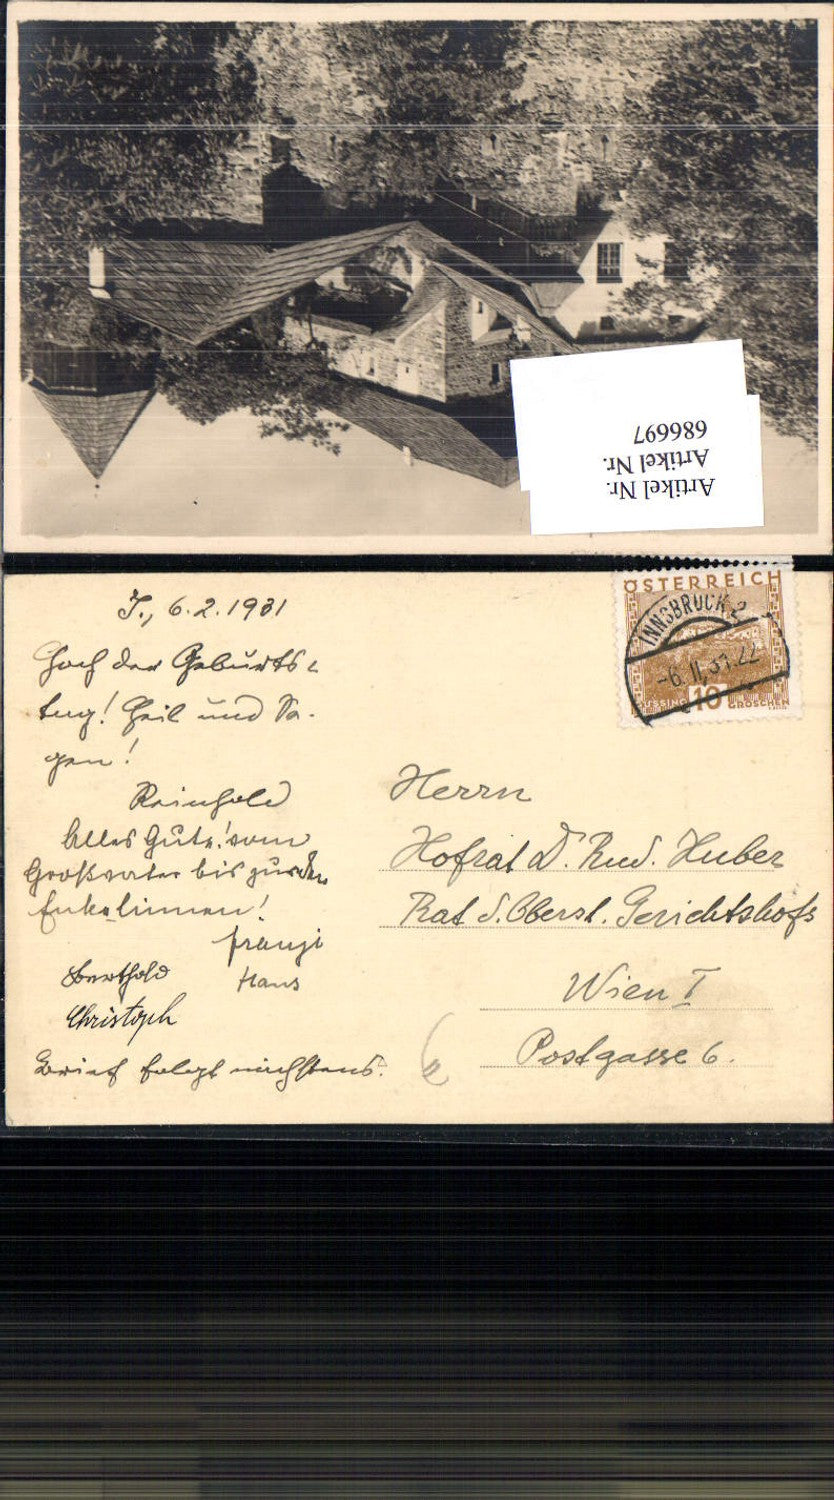 Artikel Nr.
Artikel Nr.
686697
ÖSTERREICH
INNSBRUCK 2
-6.II.31.22
10
GROSCHEN
J., 6.2.1931
Hoch der Geburts-
tag! Heil und Se-
gen!
Reinhold
Alles Gute! vom
Großvater bis zu den
Enkelinnen!
Franzi
Berthold Hans
Christoph
Brief folgt nächstens.
Herrn
Hofrat D. Rud. Huber
Rat d. Oberst. Gerichtshofs
Wien I
Postgasse 6.